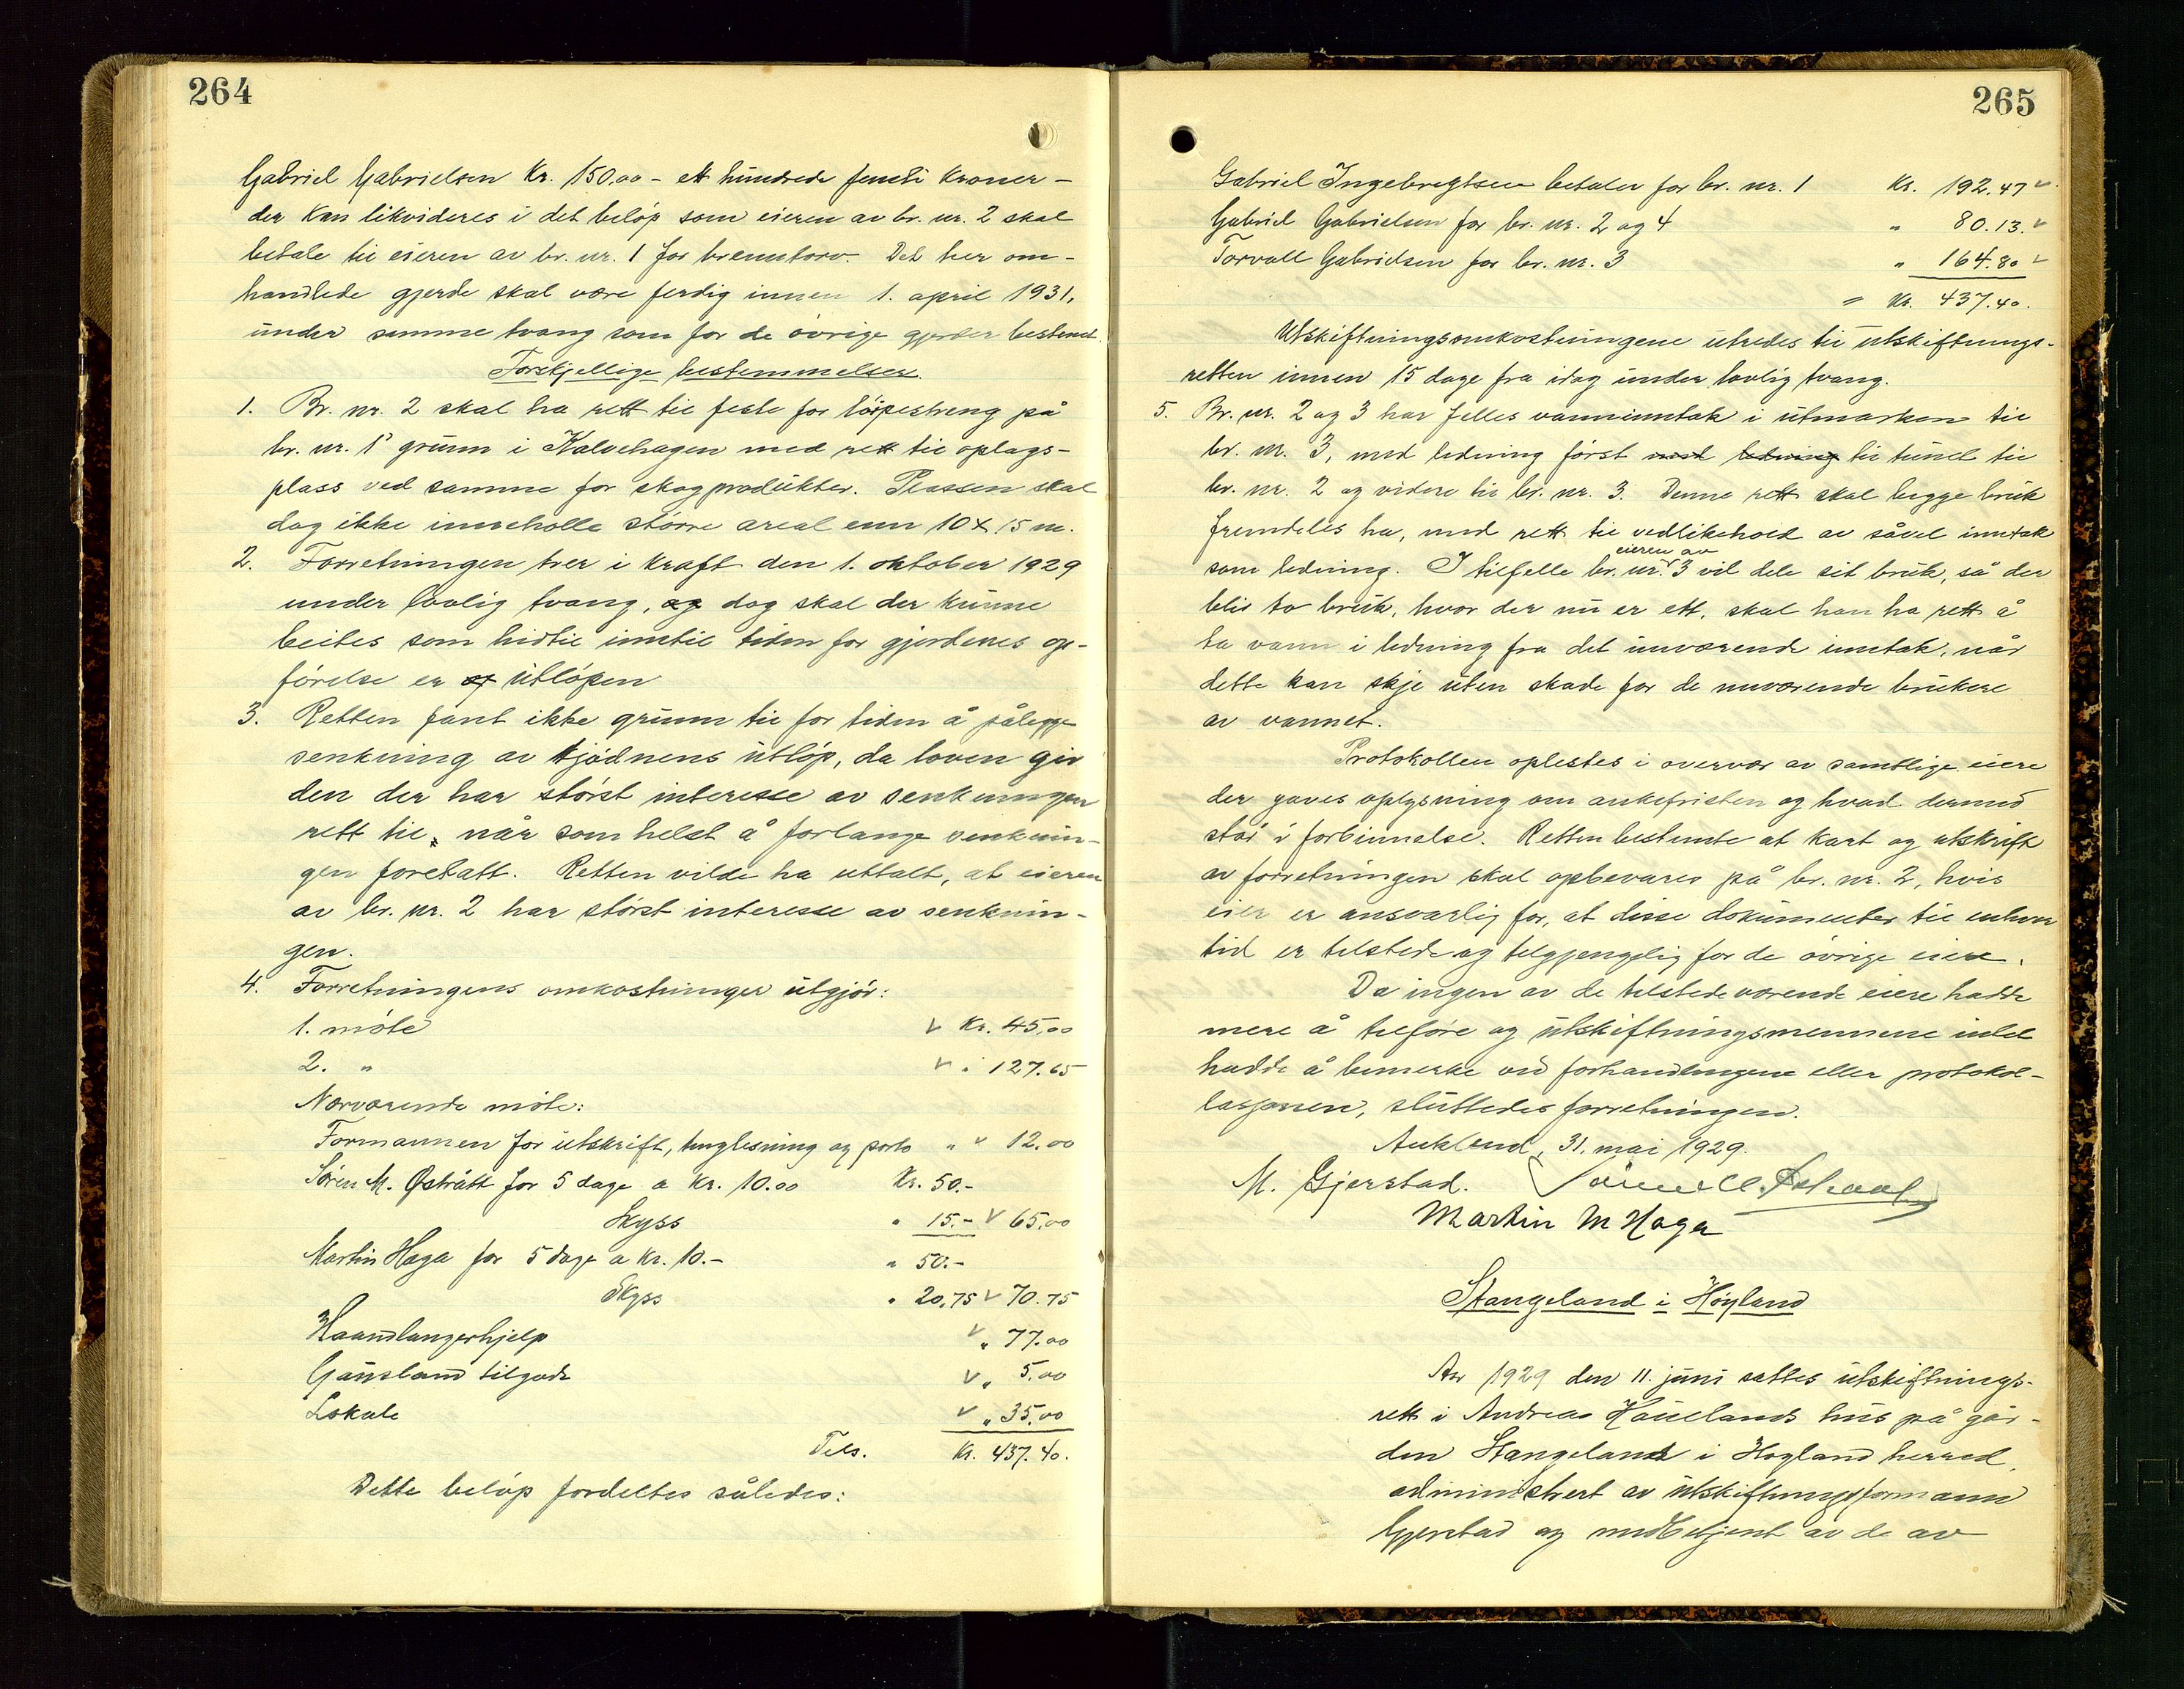 264
Gabriel Gabrielsen Kr. 150,00 – ett hundrede femti kroner –
der kan likvideres i det beløp som eieren av br. nr. 2 skal
betale til eieren av br. nr. 1 for brenntorv. Det her om-
handlede gjerde skal være ferdig innen 1. april 1931,
under samme tvang som for de øvrige gjerder bestemt.
Forskjellige bestemmelser.
1. Br. nr. 2 skal ha rett til feste for løipestreng på
br. nr. 1s grunn i Kalvehagen med rett til oplags-
plass ved samme for skogprodukter. Plassen skal
dog ikke inneholle større areal enn 10 x 15 m.
2. Forretningen trer i kraft den 1. oktober 1929
under lovlig tvang, og dog skal der kunne
beites som hidtil inntil tiden for gjerdenes op-
førelse er utløpen
3. Retten fant ikke grunn til for tiden å pålegge
senkning av tjødnens utløp, da loven gir
den der har størst interesse av senkningen
rett til, når som helst å forlange senknin-
gen foretatt. Retten vilde ha uttalt, at eieren
av br. nr. 2 har størst interesse av senknin-
gen.
4. Forretningens omkostninger utgjør:
1. møte v Kr. 45,00
2. " v " 127.65
Nærværende møte:
Formannen for utskrift, tinglesning og porto " v 12.00
Søren M. Østrått for 5 dage a kr. 10.00 Kr. 50.-
Skyss " 15.- v 65,00
Martin Haga for 5 dage a kr. 10.- " 50.-
Skyss " 20,75 v 70.75
Haandlangerhjelp v " 77.00
Gausland tilgode v " 5.00
Lokale v " 35,00
Tils. Kr. 437.40.
Dette beløp fordeltes således:
265
Gabriel Ingebregtsen betaler for br. nr. 1 Kr. 192.47 v
Gabriel Gabrielsen for br. nr. 2 og 4 " 80.13. v
Torvall Gabrielsen for br. nr. 3 " 164.80 v
= Kr. 437.40.
Utskiftningsomkostningene utredes til utskiftnings-
retten innen 15 dage fra idag under lovlig tvang.
5. Br. nr. 2 og 3 har felles vanninntak i utmarken til
br. nr. 3, med ledning først med ledning til tunet til
br. nr. 2 og videre til br. nr. 3. Denne rett skal begge bruk
fremdeles ha, med rett til vedlikehold av såvel inntak
som ledning. I tilfelle eieren av br. nr. 3 vil dele sit bruk, så der
blir to bruk, hvor der nu er ett, skal han ha rett å
ta vann i ledning fra det nuværende inntak, når
dette kan skje uten skade for de nuværende brukere
av vannet.
Protokollen oplestes i overvær av samtlige eiere
der gaves oplysning om ankefristen og hvad dermed
står i forbinnelse. Retten bestemte at kart og utskrift
av forretningen skal opbevares på br. nr. 2, hvis
eier er ansvarlig for, at disse dokumenter til enhver
tid er tilstede og tilgjengelig for de øvrige eiere.
Da ingen av de tilstedeværende eiere hadde
mere å tilføre og utskiftningsmennene intet
hadde å bemerke ved forhandlingene eller protokol-
lasjonen, sluttedes forretningen.
Aukland, 31. mai 1929.
M. Gjerstad. Søren M. Østraat
Martin M Haga
Stangeland i Høyland
Aar 1929 den 11. juni sattes utskiftnings-
rett i Andreas Hauelands hus på går-
den Stangeland i Høyland herred,
administrert av utskiftningsformann
Gjerstad og medbetjent av de av